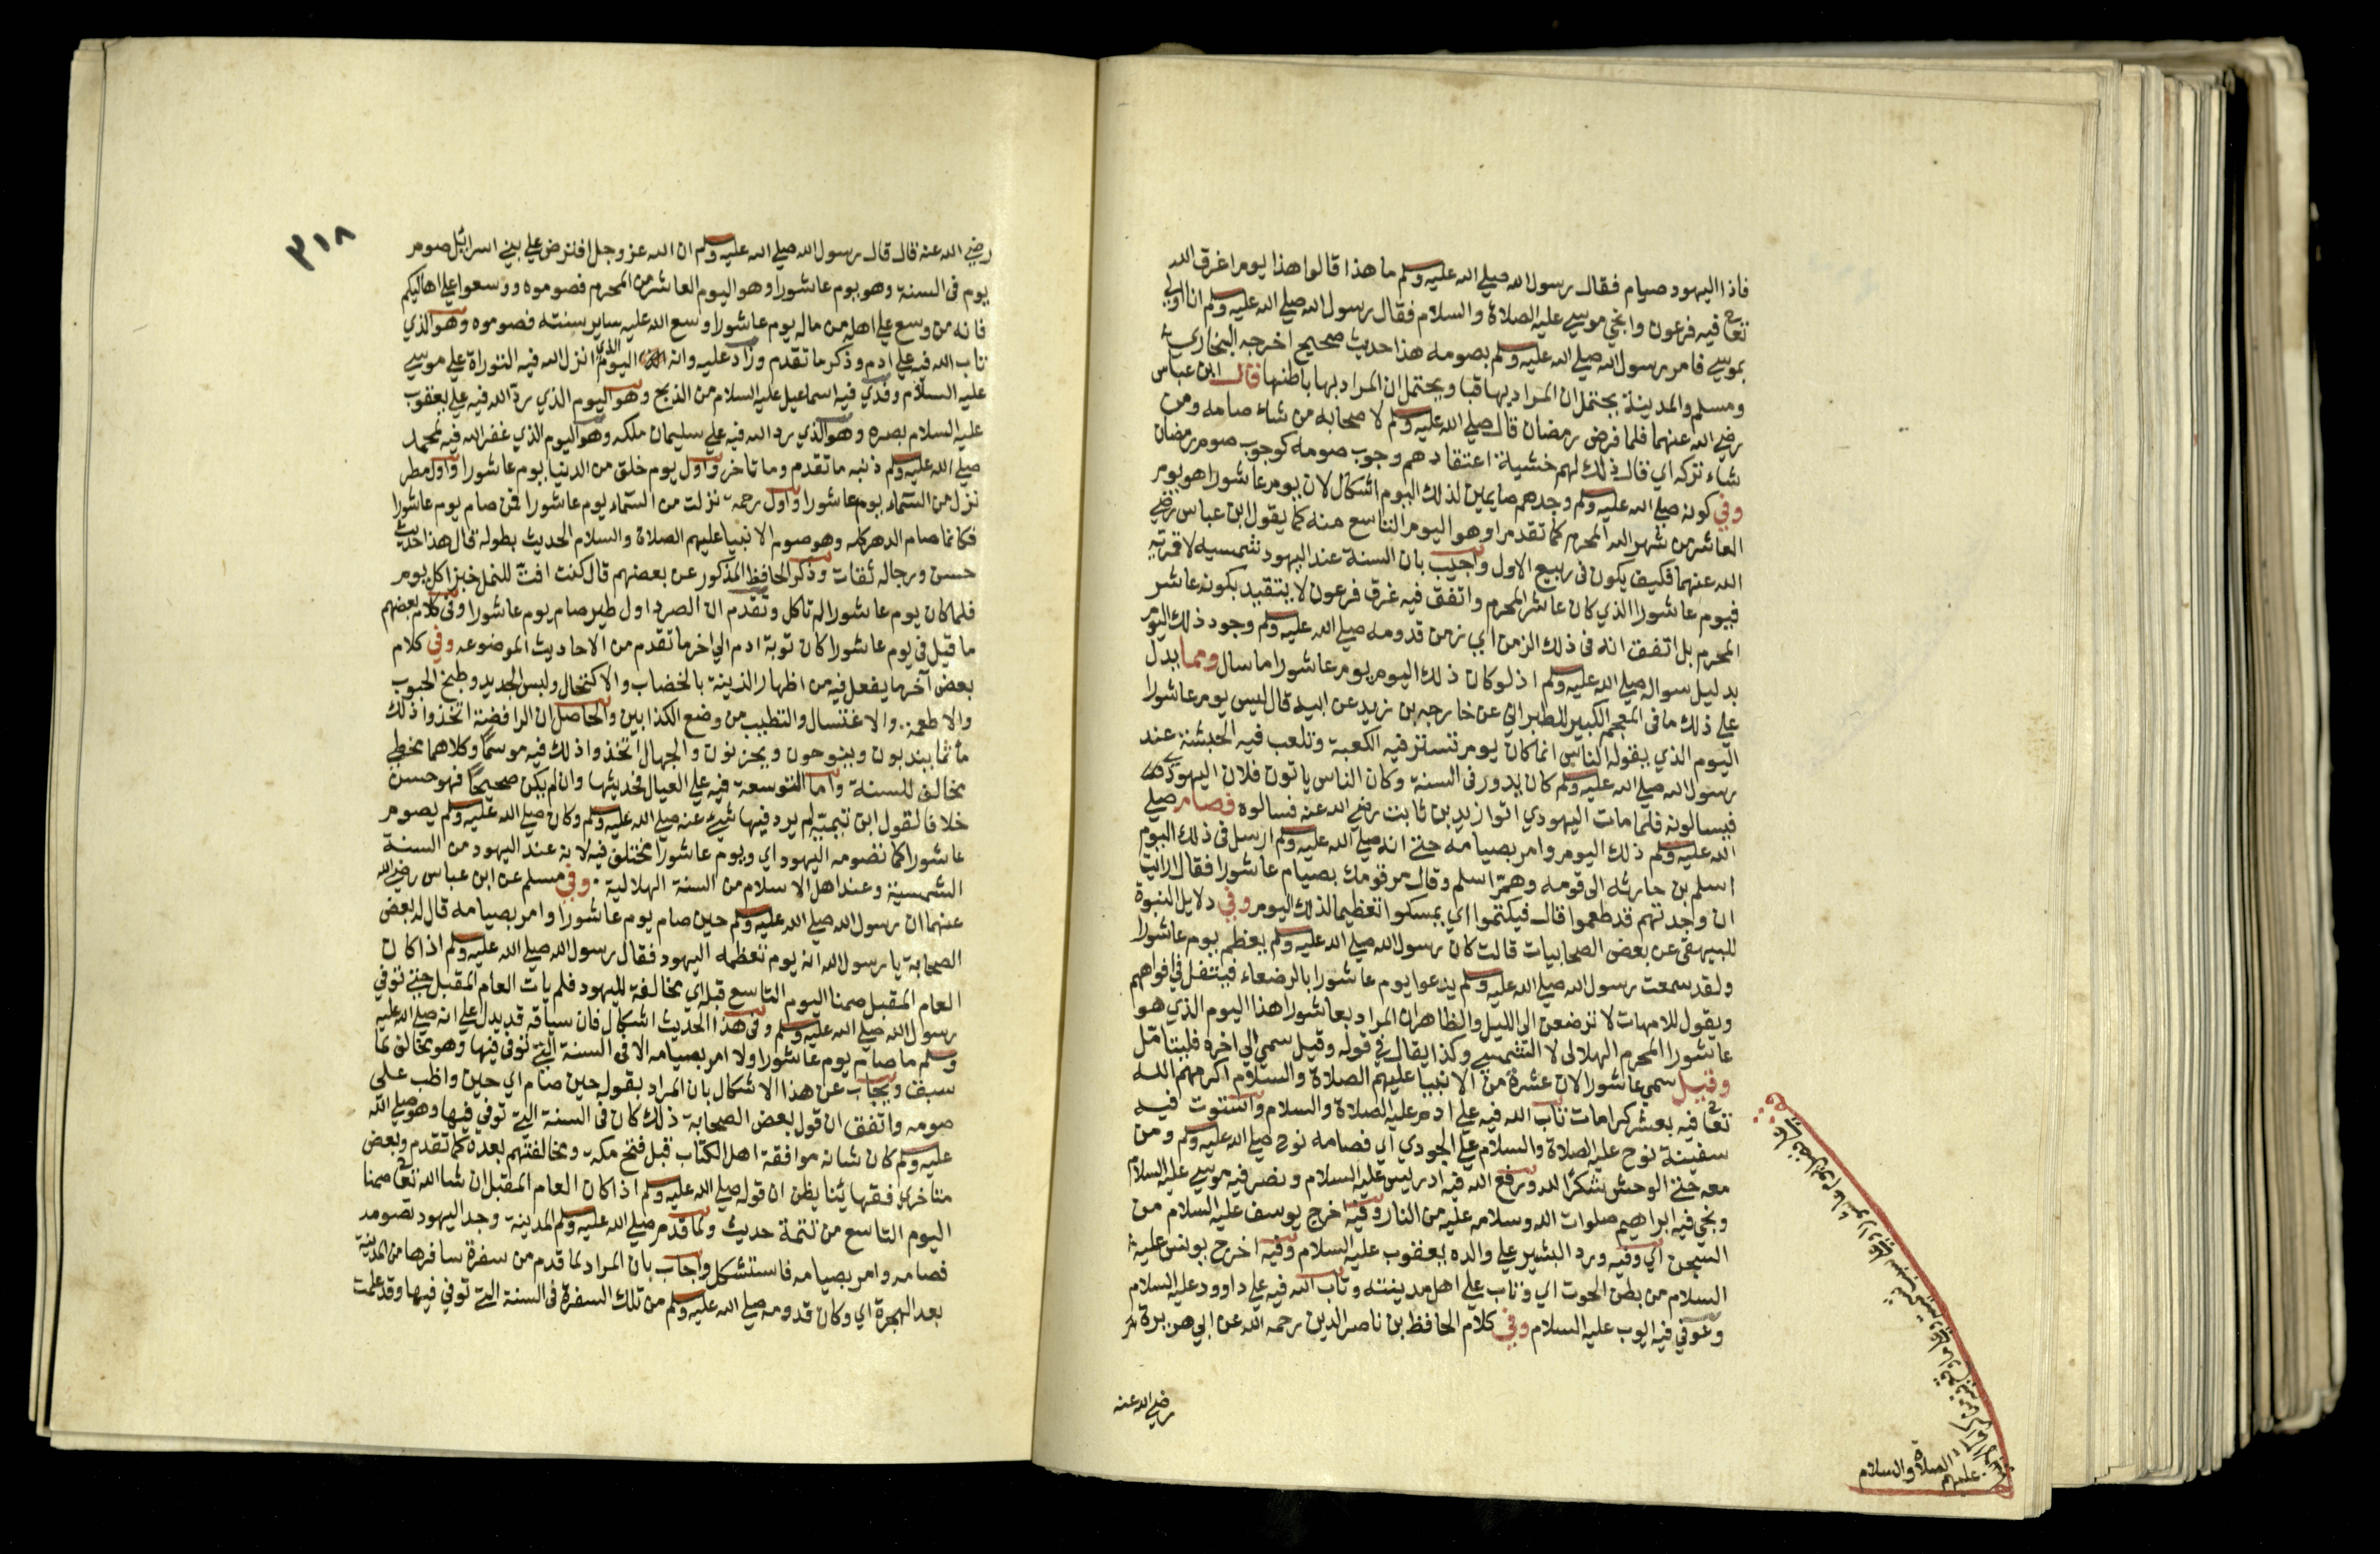 فاذا اليهود صيام فقال رسول الله صلي الله عليه وسلم ما هذا قالوا هذا يوم اغرق الله
تعالى فيه فرعون وانجي موسي عليه الصلاة والسلام فقال رسول الله صلي الله عليه وسلم انا اولي
بموسي فامر رسول الله صلي الله عليه وسلم بصومه هذا حديث صحيح اخرجه البخاري
ومسلم والمدينة يحتمل ان المراد بها قبا ويحتمل ان المراد بها باطنها قال ابن عباس
رضي الله عنهما فلما فرض رمضان قال صلي الله عليه وسلم لاصحابه من شاء صامه ومن
شاء تركه اي قال ذلك لهم خشية اعتقادهم وجوب صومه كوجوب صوم رمضان
وفي كونه صلي الله عليه وسلم وجدهم صايمين لذلك اليوم اشكال لان يوم عاشورا هو يوم
العاشر من شهر الله المحرم كما تقدم او هو اليوم التاسع منه كما يقول ابن عباس رضي
الله عنهما فكيف يكون في ربيع الاول واجيب بان السنة عند اليهود شمسيه لا قمريه
فيوم عاشورا الذي كان عاشر المحرم واتفق فيه غرق فرعون لا يتقيد بكونه عاشر
المحرم بل اتفق انه في ذلك الزمن اي زمن قدومه صلي الله عليه وسلم وجود ذلك اليوم
بدليل سواله صلي الله عليه وسلم اذ لو كان ذلك اليوم يوم عاشورا ما سال ومما يدل
علي ذلك ما في المعجم الكبير للطبراني عن خارجه بن زيد عن ابيه قال ليس يوم عاشورا
اليوم الذي يقوله الناس انما كان يوم تستر فيه الكعبة وتلعب فيه الحبشة عند
رسول الله صلي الله عليه وسلم كان يدور في السنة وكان الناس ياتون فلان اليهودي
فيسالونه فلما مات اليهودي اتوا زيد بن ثابت رضي الله عنه فسالوه فصام صلي
الله عليه وسلم ذلك اليوم وامر بصيامه حتي انه صلي الله عليه وسلم ارسل في ذلك اليوم
اسلم بن حارثه الي قومه وهم اسلم وقال مر قومك بصيام عاشورا فقال ارايت
ان وجدتهم قد طعموا قال فيكتموا اي يمسكوا تعظيما لذلك اليوم وفي دلايل النبوة
للبيهقي عن بعض الصحابيات قالت كان رسول الله صلي الله عليه وسلم يعظم يوم عاشورا
ولقد سمعت رسول الله صلي الله عليه وسلم يدعوا يوم عاشورا بالرضعاء فيتفل في افواههم
ويقول للامهات لا ترضعن الي الليل والظاهر ان المراد بعاشورا هذا اليوم الذي هو
عاشورا المحرم الهلالي لا الشمسي وكذا يقال في قوله وقيل سمي الي اخره فليتامل
وقيل سمي عاشورا لان عشرة من الانبيا عليهم الصلاة والسلام اكرمهم الله
تعالى فيه بعشر كرامات تاب الله فيه علي ادم عليه الصلاة والسلام واستوت فيه
سفينة نوح عليه الصلاة والسلام علي الجودي اي فصامه نوح صلي الله عليه وسلم ومن
معه حتي الوحش شكرا لله ورفع الله فيه ادريس عليه السلام ونصر فيه موسي عليه السلام
ونجي فيه ابراهيم صلوات الله وسلامه عليه من النار وفيه اخرج يوسف عليه السلام من
السجن اي وفيه ورد البشير علي والده يعقوب عليه السلام وفيه اخرج يونس عليه
السلام من بطن الحوت اي وتاب علي اهل مدينته وتاب الله فيه علي داوود عليه السلام
وعوفي فيه ايوب عليه السلام وفي كلام الحافظ بن ناصر الدين رحمه الله عن ابي هريرة
رضي الله عنه
عليهم الصلاة والسلام
٣١٨
رضي الله عنه قال قال رسول الله صلي الله عليه وسلم ان الله عز وجل افترض علي بني اسرائيل صوم
يوم في السنة وهو يوم عاشورا وهو اليوم العاشر من المحرم فصوموه ووسعوا علي اهاليكم
فانه من وسع علي اهله من ماله يوم عاشورا وسع الله عليه ساير سنته فصوموه وهو الذي
تاب الله فيه علي ادم وذكر ما تقدم وزاد عليه وانه اليوم الذي انزل الله فيه التوراة علي موسي
عليه السلام وفدي فيه اسماعيل عليه السلام من الذبح وهو اليوم الذي رد الله فيه علي يعقوب
عليه السلام بصره وهو الذي رد الله فيه علي سليمان ملكه وهو اليوم الذي غفر الله فيه لمحمد
صلي الله عليه وسلم ذنبه ما تقدم وما تاخر واول يوم خلق من الدنيا يوم عاشورا واول مطر
نزل من السماء يوم عاشورا واول رحمة نزلت من السماء يوم عاشورا فمن صام يوم عاشورا
فكانما صام الدهر كله وهو صوم الانبيا عليهم الصلاة والسلام الحديث بطوله قال هذا حديث
حسن ورجاله ثقات وذكر الحافظ المذكور عن بعضهم قال كنت افت للنمل خبزا كل يوم
فلما كان يوم عاشورا لم تاكل وتقدم ان الصرد اول طير صام يوم عاشورا وفي كلام بعضهم
ما قيل في يوم عاشورا كان توبة ادم الي اخر ما تقدم من الاحاديث الموضوعه وفي كلام
بعض اخر ما يفعل فيه من اظهار الزينة بالخضاب والاكتحال ولبس الجديد وطبخ الحبوب
والاطعمة والاغتسال والتطيب من وضع الكذابين والحاصل ان الرافضة اتخذوا ذلك
ماتما يندبون وينوحون ويحزنون والجهال اتخذوا ذلك فيه موسما وكلاهما مخطي
مخالف للسنة واما التوسعة فيه علي العيال فحديثها وان لم يكن صحيحا فهو حسن
خلافا لقول ابن تيميه لم يرد فيها شي عنه صلي الله عليه وسلم وكان صلي الله عليه وسلم يصوم
عاشورا كما تصومه اليهود اي ويوم عاشورا يختلف فيه لانه عند اليهود من السنة
الشمسية وعند اهل الاسلام من السنة الهلالية وفي مسلم عن ابن عباس رضي الله
عنهما ان رسول الله صلي الله عليه وسلم حين صام يوم عاشورا وامر بصيامه قال له بعض
الصحابة يا رسول الله انه يوم تعظمه اليهود فقال رسول الله صلي الله عليه وسلم اذا كان
العام المقبل صمنا اليوم التاسع قبله اي مخالفة لليهود فلم يات العام المقبل حتي توفي
رسول الله صلي الله عليه وسلم وفي هذا الحديث اشكال فان سياقه قد يدل علي انه صلي الله عليه
وسلم ما صام يوم عاشورا ولا امر بصيامه الا في السنة التي توفي فيها وهو مخالف لما
سبق ويجاب عن هذا الاشكال بان المراد بقوله حين صام اي حين واظب علي
صومه واتفق ان قول بعض الصحابة ذلك كان في السنة التي توفي فيها وهو صلي الله
عليه وسلم كان شانه موافقة اهل الكتاب قبل فتح مكه ومخالفتهم بعده كما تقدم وبعض
متاخري فقهائنا يظن ان قوله صلي الله عليه وسلم اذا كان العام المقبل ان شا الله تعالى صمنا
اليوم التاسع من تتمة حديث ولما قدم صلي الله عليه وسلم المدينة وجد اليهود تصومه
فصامه وامر بصيامه فاستشكل واجاب بان المراد لما قدم من سفرة سافرها من المدينة
بعد الهجرة اي وكان قدومه صلي الله عليه وسلم من تلك السفرة في السنة التي توفي فيها وقد علمت